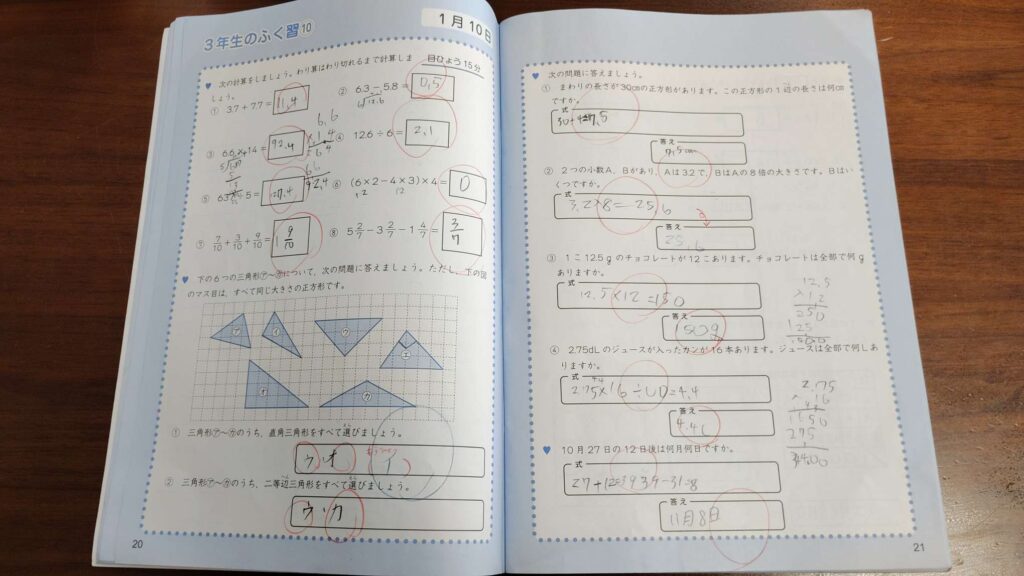 3年生のふく習10
1月10日
目ひょう15分
次の計算をしましょう。わり算はわり切れるまで計算しま
しょう。
① 3.7+7.7= 11.4
② 6.3−5.8= 0.5
③ 6.6×14= 92.4
④ 12.6÷6= 2.1
⑤
⑥ (6×2−4×3)×4= 0
⑦ 7/10+3/10+9/10= 1 9/10
⑧ 5 2/7−3 2/7−1 4/7= 3/7
下の6つの三角形㋐〜㋕について、次の問題に答えましょう。ただし、下の図
のマス目は、すべて同じ大きさの正方形です。
㋐ ㋑ ㋒ ㋓
㋔ ㋕
① 三角形㋐〜㋕のうち、直角三角形をすべて選びましょう。
ウ,オ
② 三角形㋐〜㋕のうち、二等辺三角形をすべて選びましょう。
ウ,カ
20
次の問題に答えましょう。
① まわりの長さが30cmの正方形があります。この正方形の1辺の長さは何cm
ですか。
式
30÷4=7.5
答え
7.5cm
② 2つの小数A、Bがあり、Aは3.2で、BはAの8倍の大きさです。Bはい
くつですか。
式
3.2×8=25.6
答え
25.6
③ 1こ12.5gのチョコレートが12こあります。チョコレートは全部で何g
ありますか。
式
12.5×12=150
答え
150g
12.5
×12
250
125
④ 2.75dLのジュースが入ったカンが16本あります。ジュースは全部で何Lあ
りますか。
式
2.75×16÷10=4.4
答え
4.4L
2.75
×16
1650
275
10月27日の12日後は何月何日ですか。
式
27+12=39 39-31=8
答え
11月8日
21